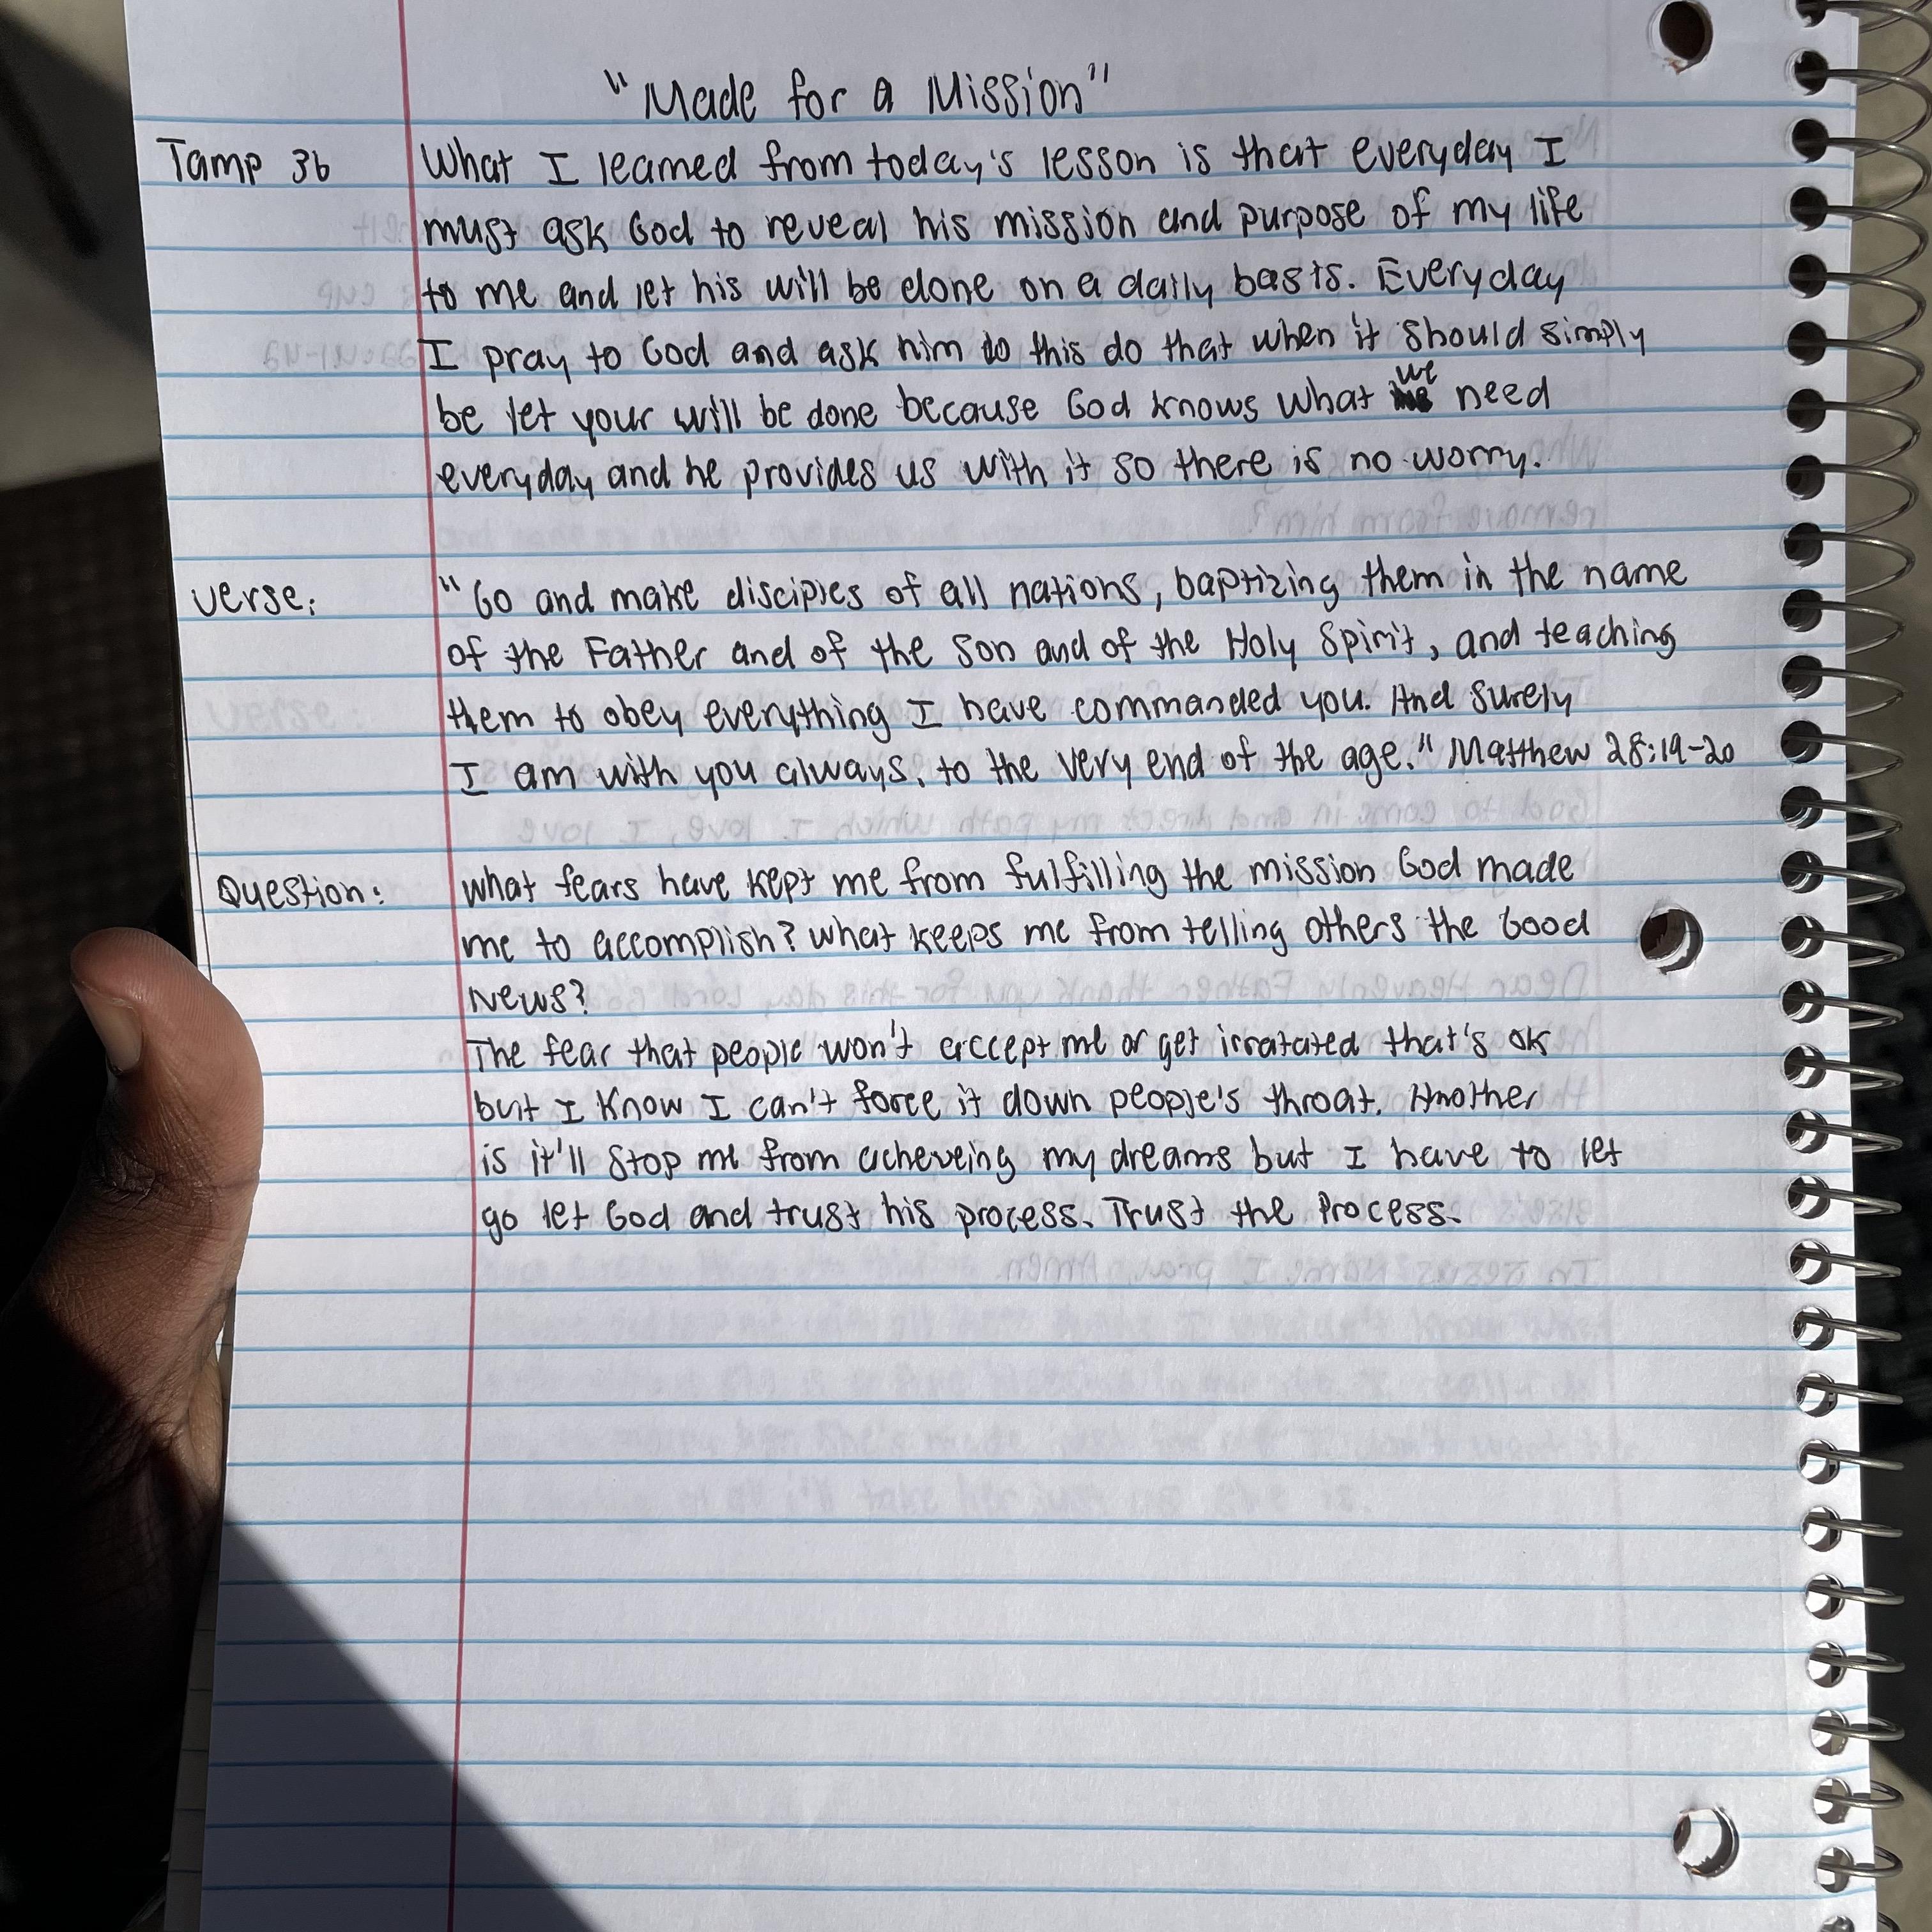 "Made for a Mission"
Tamp 36 What I learned from today's lesson is that everyday I
must ask God to reveal his mission and purpose of my life
to me and let his will be done on a daily basis. Everyday
I pray to God and ask him to this do that when it should simply
be let your will be done because God knows what we need
everyday and he provides us with it so there is no worry.
Verse: "Go and make disciples of all nations, baptizing them in the name
of the Father and of the Son and of the Holy Spirit, and teaching
them to obey everything I have commanded you. And surely
I am with you always, to the very end of the age." Matthew 28:19-20
Question: What fears have kept me from fulfilling the mission God made
me to accomplish? What keeps me from telling others the Good
News?
The fear that people won't accept me or get irratated that's ok
but I know I can't force it down people's throat. Another
is it'll stop me from acheveing my dreams but I have to let
go let God and trust his process. Trust the Process.